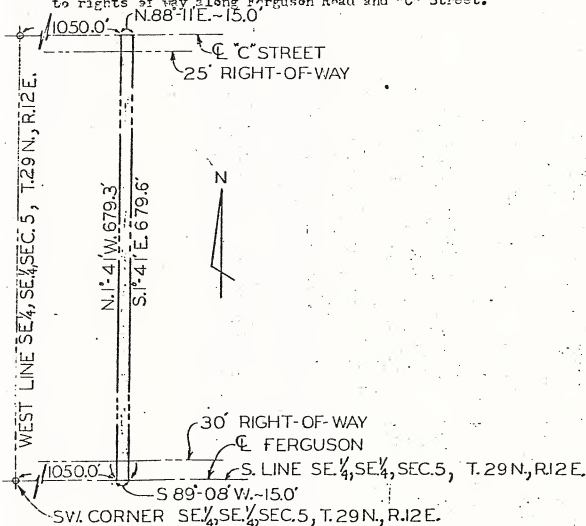 to rights of way along Ferguson Road and "C" Street.
N.88°-11'E.~15.0'
1050.0'
℄ "C" STREET
25' RIGHT-OF-WAY
WEST LINE SE.¼, SE.¼, SEC. 5, T.29 N., R.12 E.
N.1°-41'W. 679.3'
S.1°-41'E. 679.6'
N
30' RIGHT-OF-WAY
℄ FERGUSON
1050.0'
S. LINE SE.¼, SE.¼, SEC.5, T.29 N., R.12E.
S 89°-08' W.~15.0'
SW. CORNER SE.¼, SE.¼, SEC.5, T.29 N., R.12E.